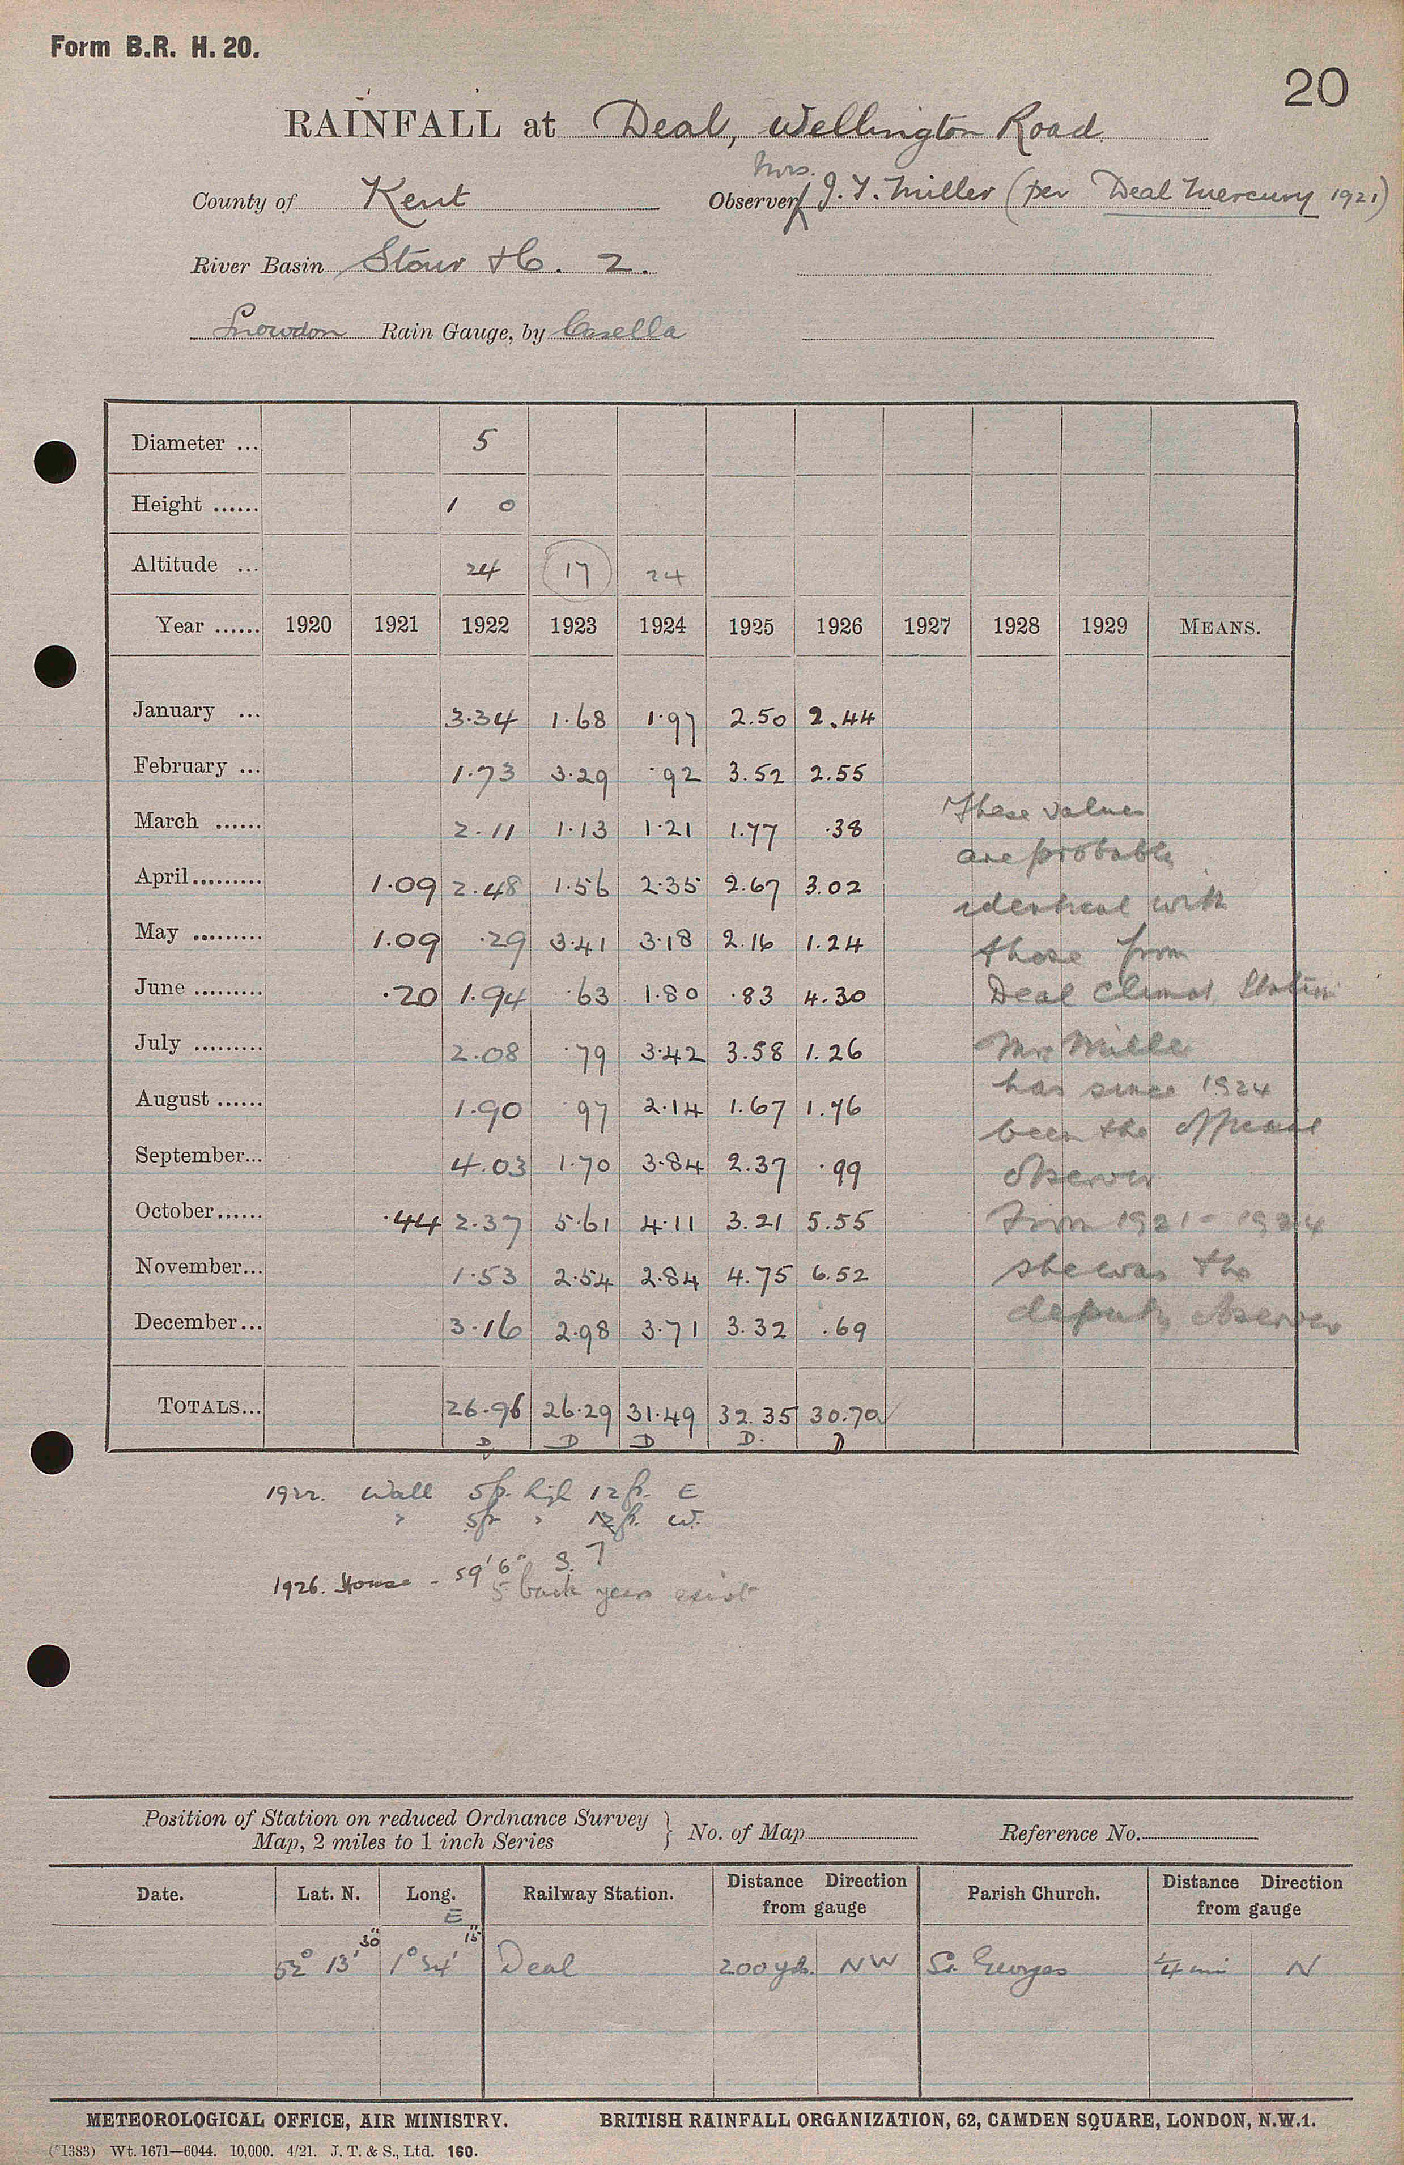 Form B.R. H. 20.
20
RAINFALL at Deal, Wellington Road.
Mrs.
County of Kent Observer J. Y. Miller (per Deal Mercury 1921)
River Basin Stour &c. 2.
Snowdon Rain Gauge, by Casella
Diameter ... 5
Height ...... 1 0
Altitude ... 24 17 24
Year ...... 1920 1921 1922 1923 1924 1925 1926 1927 1928 1929 MEANS.
January ... 3.34 1.68 1.97 2.50 2.44
February ... 1.73 3.29 .92 3.52 2.55
March ...... 2.11 1.13 1.21 1.77 .38
April......... 1.09 2.48 1.56 2.35 2.67 3.02
May ......... 1.09 .29 3.41 3.18 2.16 1.24
June ......... .20 1.94 .63 1.80 .83 4.30
July ......... 2.08 .79 3.42 3.58 1.26
August ...... 1.90 .97 2.14 1.67 1.76
September... 4.03 1.70 3.84 2.37 .99
October...... .44 2.37 5.61 4.11 3.21 5.55
November... 1.53 2.54 2.84 4.75 6.52
December... 3.16 2.98 3.71 3.32 .69
TOTALS... 26.96 26.29 31.49 32.35 30.70
D D D D. D
These values
are probably
identical with
those from
Deal Climat. Station
Mrs Miller
has since 1924
been the official
observer
From 1921 - 1924
she was the
deputy observer
1922. Wall 5ft. high 12ft. E
" 5ft " 12ft. W.
1926. House - 59'6" S. 7
5 back years exist
Position of Station on reduced Ordnance Survey
Map, 2 miles to 1 inch Series } No. of Map Reference No.
Date. Lat. N. Long. E Railway Station. Distance Direction from gauge Parish Church. Distance Direction from gauge
52° 13' 30" 1° 24' 15" Deal 200 yds. NW St. Georges 1/4 mi N
METEOROLOGICAL OFFICE, AIR MINISTRY. BRITISH RAINFALL ORGANIZATION, 62, CAMDEN SQUARE, LONDON, N.W.1.
(*1383) Wt. 1671—6044. 10,000. 4/21. J. T. & S., Ltd. 160.